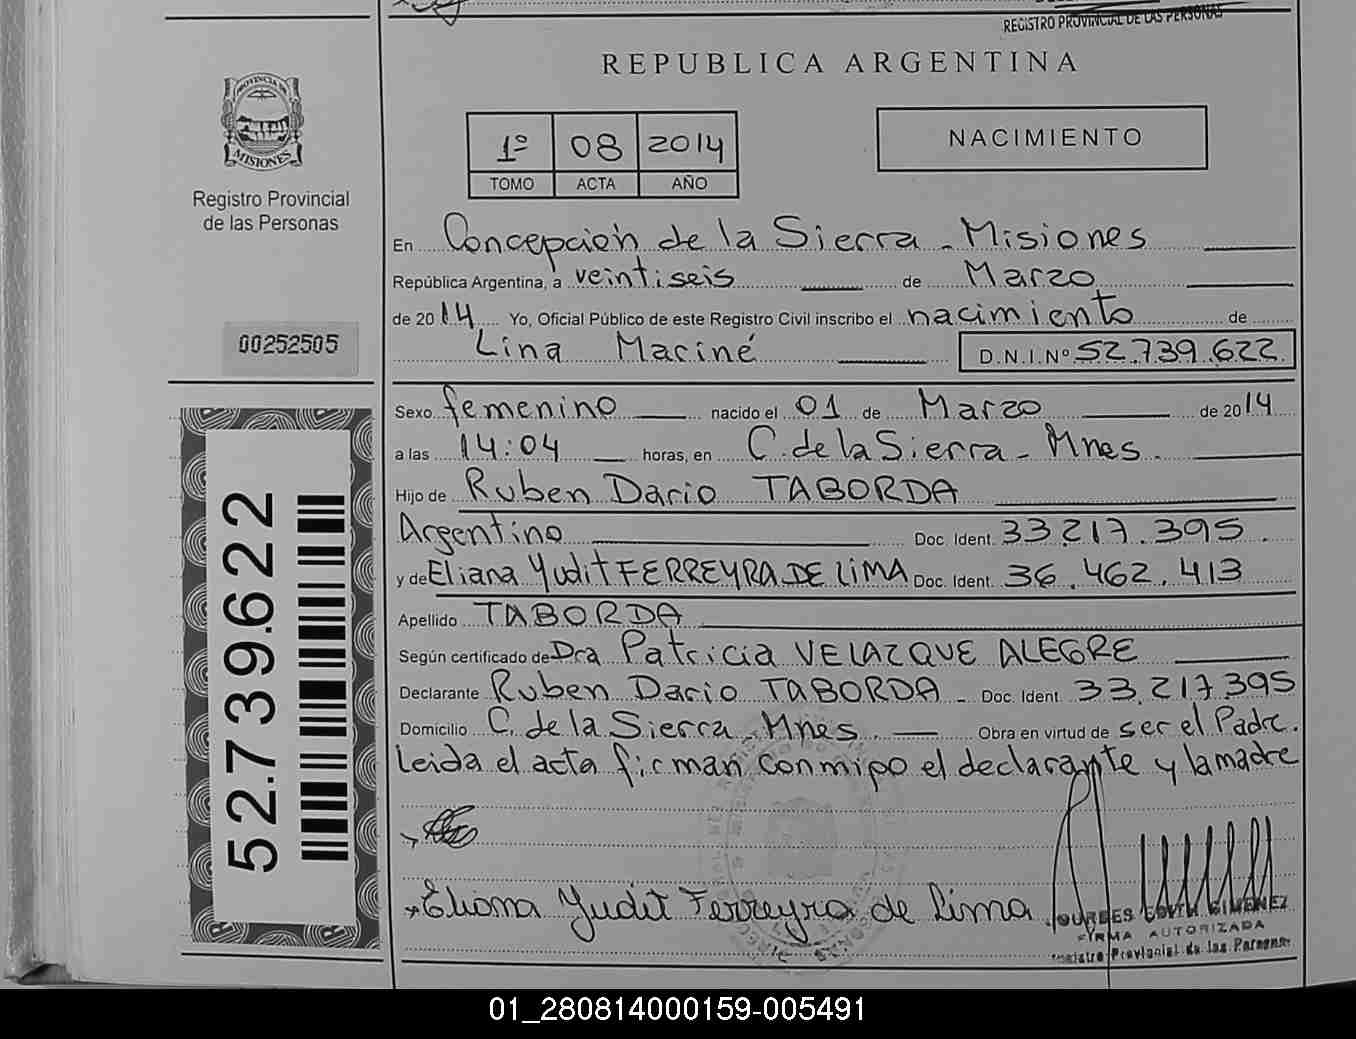 REGISTRO PROVINCIAL DE LAS PERSONAS
REPUBLICA ARGENTINA
PROVINCIA DE
MISIONES
Registro Provincial
de las Personas
1º 08 2014
TOMO ACTA AÑO
NACIMIENTO
En Concepción de la Sierra - Misiones
República Argentina, a veintiseis de Marzo
de 2014 Yo, Oficial Público de este Registro Civil inscribo el nacimiento de
Lina Maciné D.N.I.Nº 52.739.622
00252505
Sexo femenino nacido el 01 de Marzo de 2014
a las 14:04 horas, en C. de la Sierra - Mnes.
Hijo de Ruben Dario TABORDA
Argentino Doc. Ident. 33.217.395.
y de Eliana Yudit FERREYRA DE LIMA Doc. Ident. 36.462.413
Apellido TABORDA
Según certificado de Dra Patricia VELAZQUE ALEGRE
Declarante Ruben Dario TABORDA - Doc. Ident. 33.217.395
Domicilio C. de la Sierra - Mnes. Obra en virtud de ser el Padre.
Leida el acta firman conmigo el declarante y la madre
52.739.622
Eliana Yudit Ferreyra de Lima
LOURDES EDITH GIMENEZ
FIRMA AUTORIZADA
Registro Provincial de las Personas
01_280814000159-005491